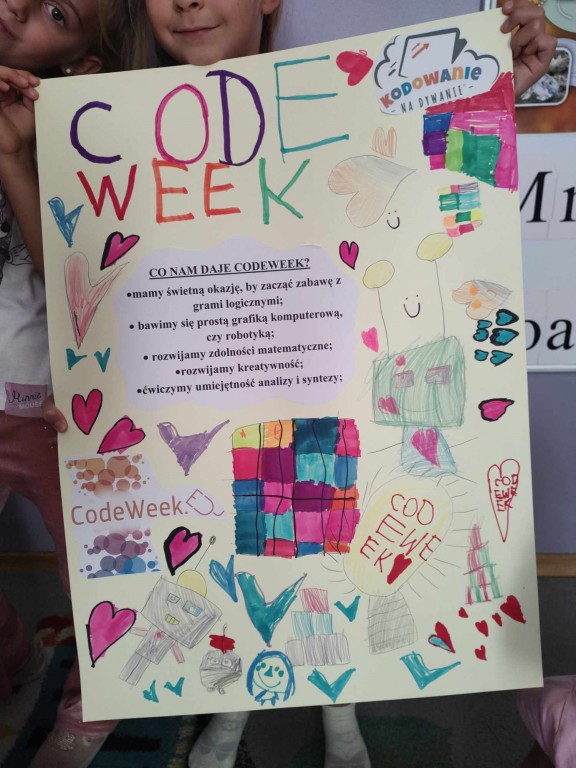 CODE
WEEK
KODOWANIE
- NA DYWANIE -
CO NAM DAJE CODEWEEK?
•mamy świetną okazję, by zacząć zabawę z
grami logicznymi;
• bawimy się prostą grafiką komputerową,
czy robotyką;
• rozwijamy zdolności matematyczne;
•rozwijamy kreatywność;
•ćwiczymy umiejętność analizy i syntezy;
CodeWeek.EU
COD
EWE
EK
Minnie